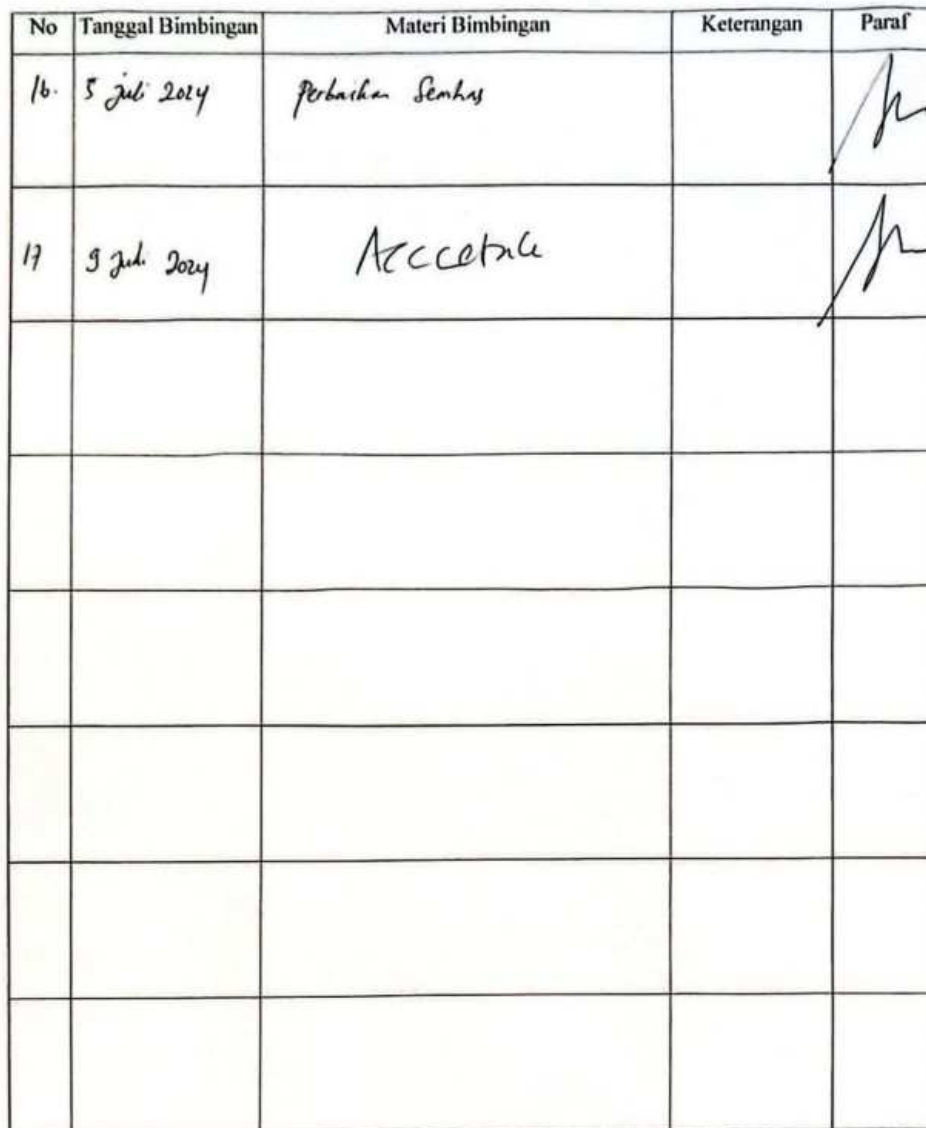 No Tanggal Bimbingan Materi Bimbingan Keterangan Paraf
16. 5 Juli 2024 Perbaikan Semhas
17 9 Juli 2024